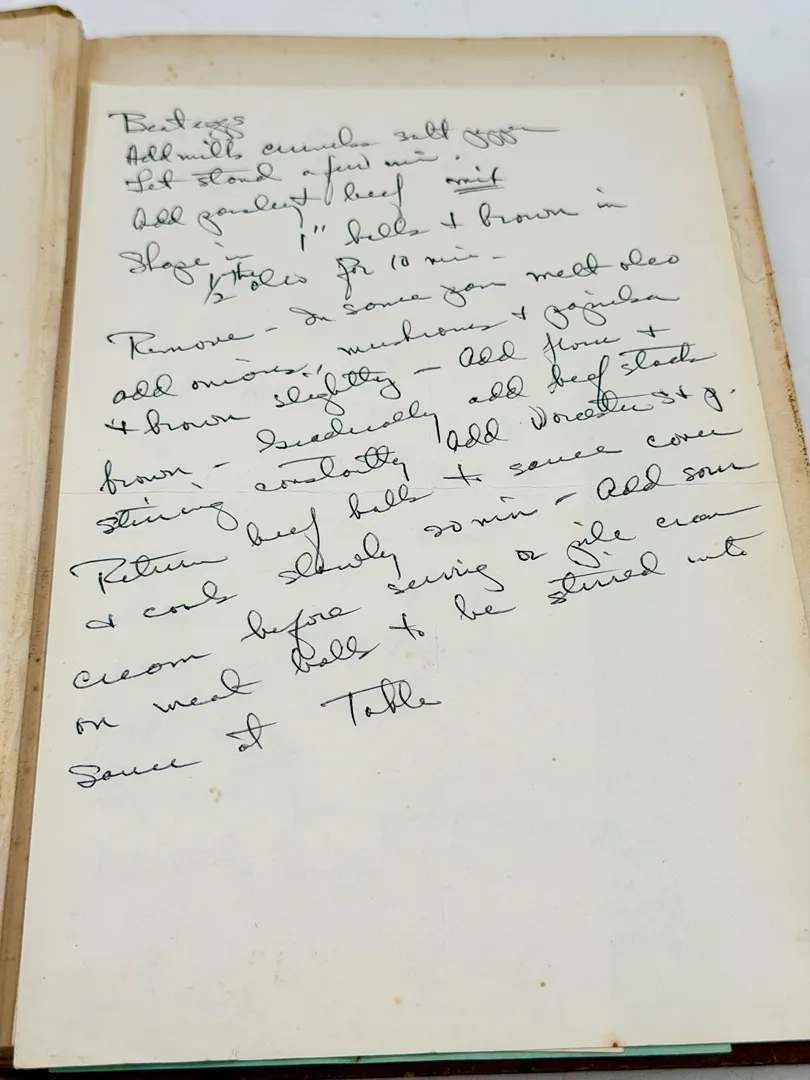 Beat eggs
Add milk crumbs salt pepper
Let stand a few min.
Add parsley & beef mix
Shape in 1" balls & brown in
1/2 the oleo for 10 min -
Remove - In same pan melt oleo
add onions, mushrooms & paprika
& brown slightly - Add flour &
brown - Gradually add beef stock
stirring constantly Add Worcester S & p.
Return beef balls to sauce cover
& cook slowly 20 min - Add sour
cream before serving or pile cream
on meat balls to be stirred into
Sauce at Table